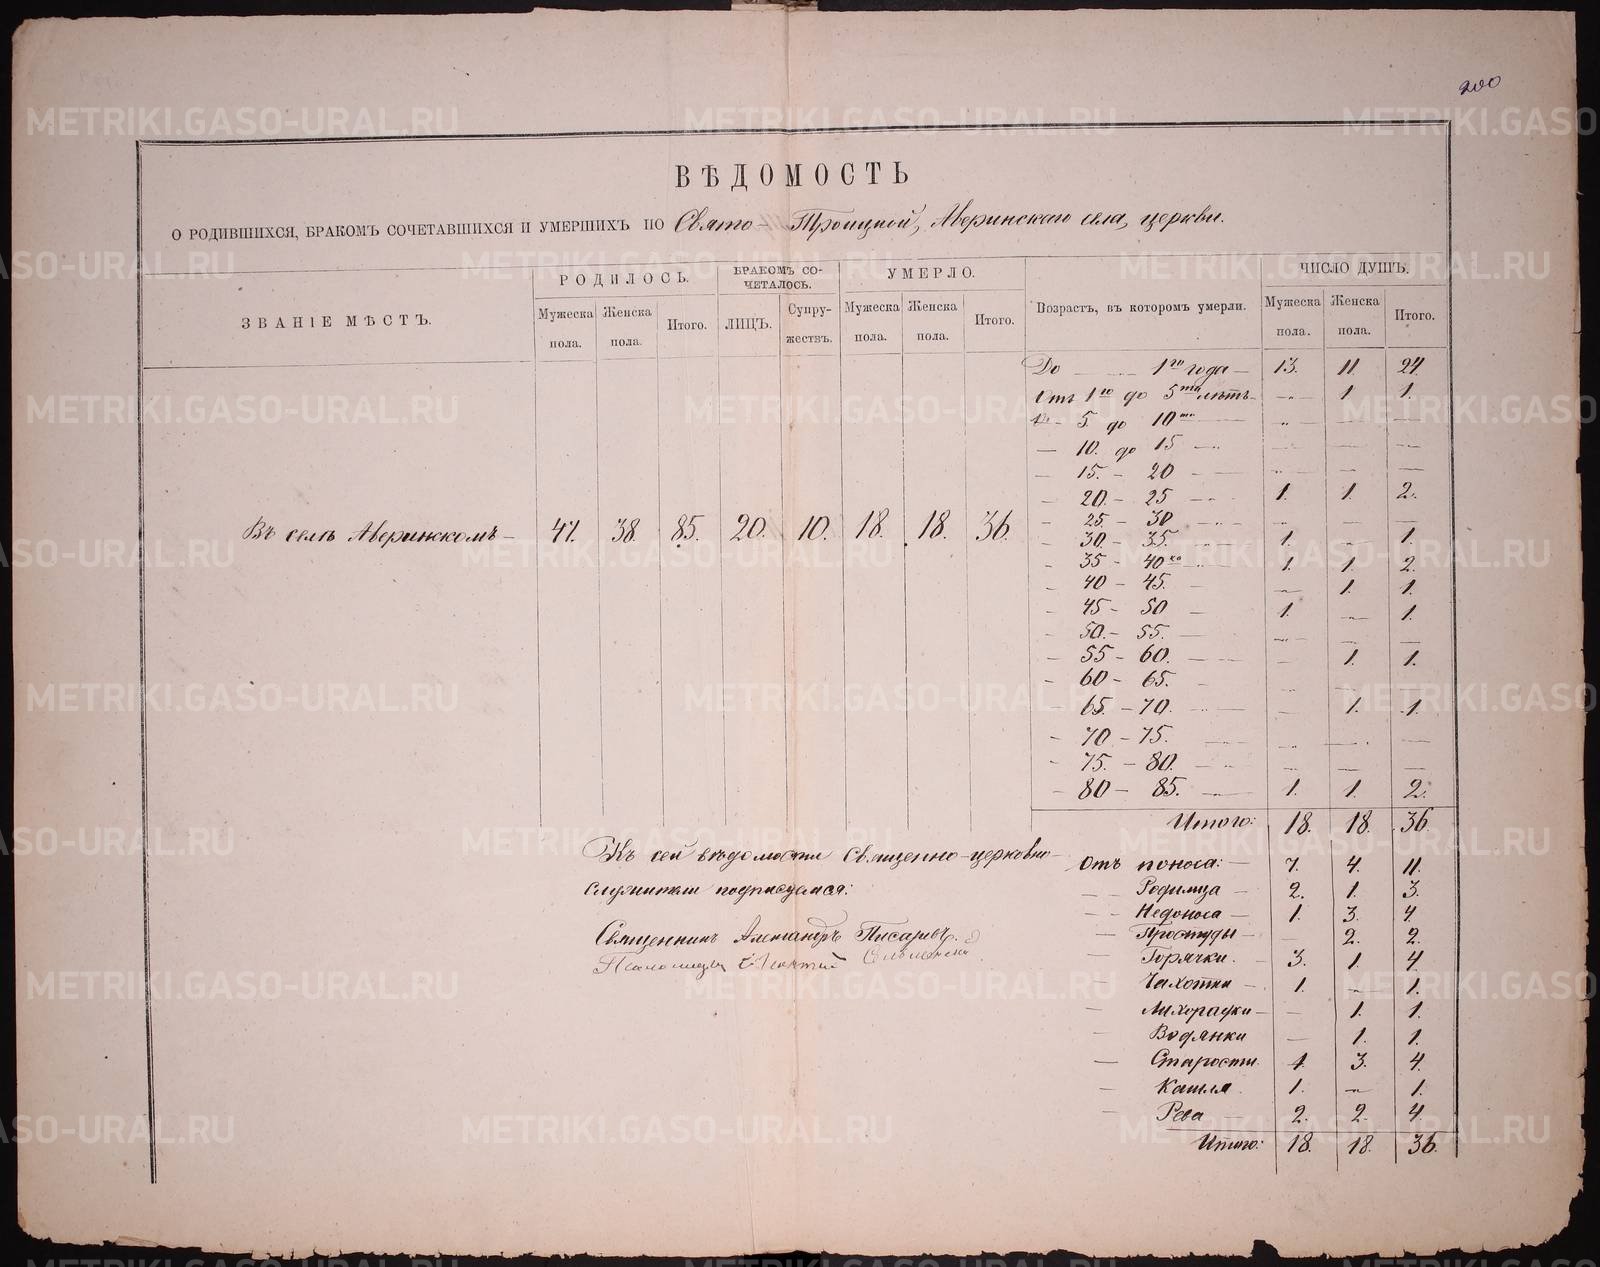 200
ВѢДОМОСТЬ
О РОДИВШИХСЯ, БРАКОМЪ СОЧЕТАВШИХСЯ И УМЕРШИХЪ ПО Свято-Троицкой, Аверинскаго села, церкви.
ЗВАНІЕ МѢСТЪ.
РОДИЛОСЬ.
Мужеска пола.
Женска пола.
Итого.
БРАКОМЪ СОЧЕТАЛОСЬ.
ЛИЦЪ.
Супружествъ.
УМЕРЛО.
Мужеска пола.
Женска пола.
Итого.
Возрастъ, въ которомъ умерли.
ЧИСЛО ДУШЪ.
Мужеска пола.
Женска пола.
Итого.
Въ селѣ Аверинскомъ — 47. 38. 85. 20. 10. 18. 18. 36.
До — 1го года — 13. 11. 24.
Отъ 1го до 5ти лѣтъ — — 1 1.
— 5. до 10ти — — — —
— 10. до 15 — — — —
— 15. — 20 — — — —
— 20. — 25 — 1. 1. 2.
— 25. — 30 — — — —
— 30. — 35. — 1. — 1.
— 35 — 40ка — 1. 1. 2.
— 40 — 45. — — 1. 1.
— 45 — 50 — 1. — 1.
— 50. — 55. — — — —
— 55 — 60. — — 1. 1.
— 60 — 65. — — — —
— 65. — 70. — — 1. 1.
— 70 — 75. — — — —
— 75. — 80. — — — —
— 80 — 85. — 1. 1. 2.
Итого: 18. 18. 36.
Къ сей вѣдомости Священно-церковно-
служители подписуемся:
Священникъ Александръ Писаревъ.
Псаломщик
Отъ поноса: — 7. 4. 11.
— Родимца — 2. 1. 3.
— Недоноса — 1. 3. 4.
— Простуды — — 2. 2.
— Горячки. — 3. 1. 4
— Чахотки — 1. — 1.
— Лихорадки — — 1. 1.
— Водянки — 1. 1.
— Старости 1. 3. 4.
— Кашля. 1. — 1.
— Рева — 2. 2. 4.
Итого: 18. 18. 36.
METRIKI.GASO-URAL.RU